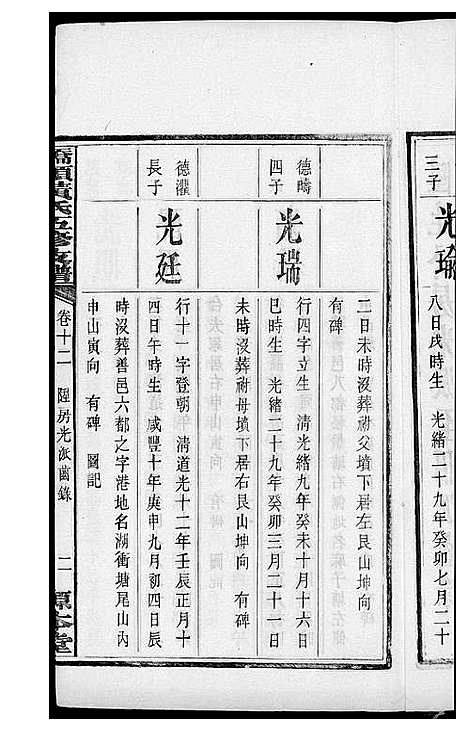 三子
光瑜
八日戌時生　光緒二十九年癸卯七月二十
二日未時沒葬祔父墳下居左艮山坤向
有碑
德疇
四子
光瑞
行四字立生　清光緒九年癸未十月十六日
巳時生　光緒二十九年癸卯三月二十一日
未時沒葬祔母墳下居右艮山坤向　有碑
德灌
長子
光廷
行十一字登朝　清道光十二年壬辰正月十
四日午時生　咸豐十年庚申九月初四日辰
時沒葬善邑六都之字港地名湖衝塘尾山內
申山寅向　有碑　圖記
黃氏五修支譜
卷十二
房光派齒錄
二
敦本堂